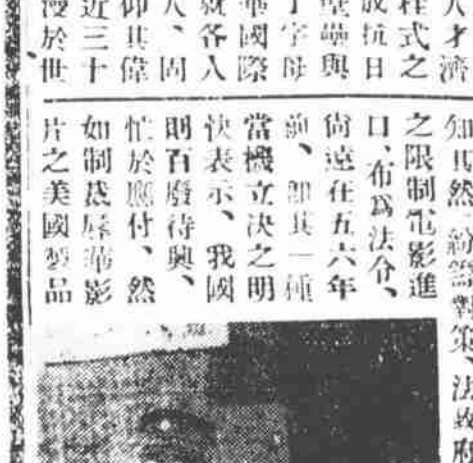 人才濟
程式之
放抗日
壁壘與
丁字母
華國際
就各人
人、固
仰其偉
近三十
漫於世
知其然、紛籌對策、法政府
之限制電影進
口、布爲法令、
尙遠在五六年
前、卽其一種
當機立決之明
快表示、我國
則百廢待興、
忙於應付、然
如制裁辱華影
片之美國製品